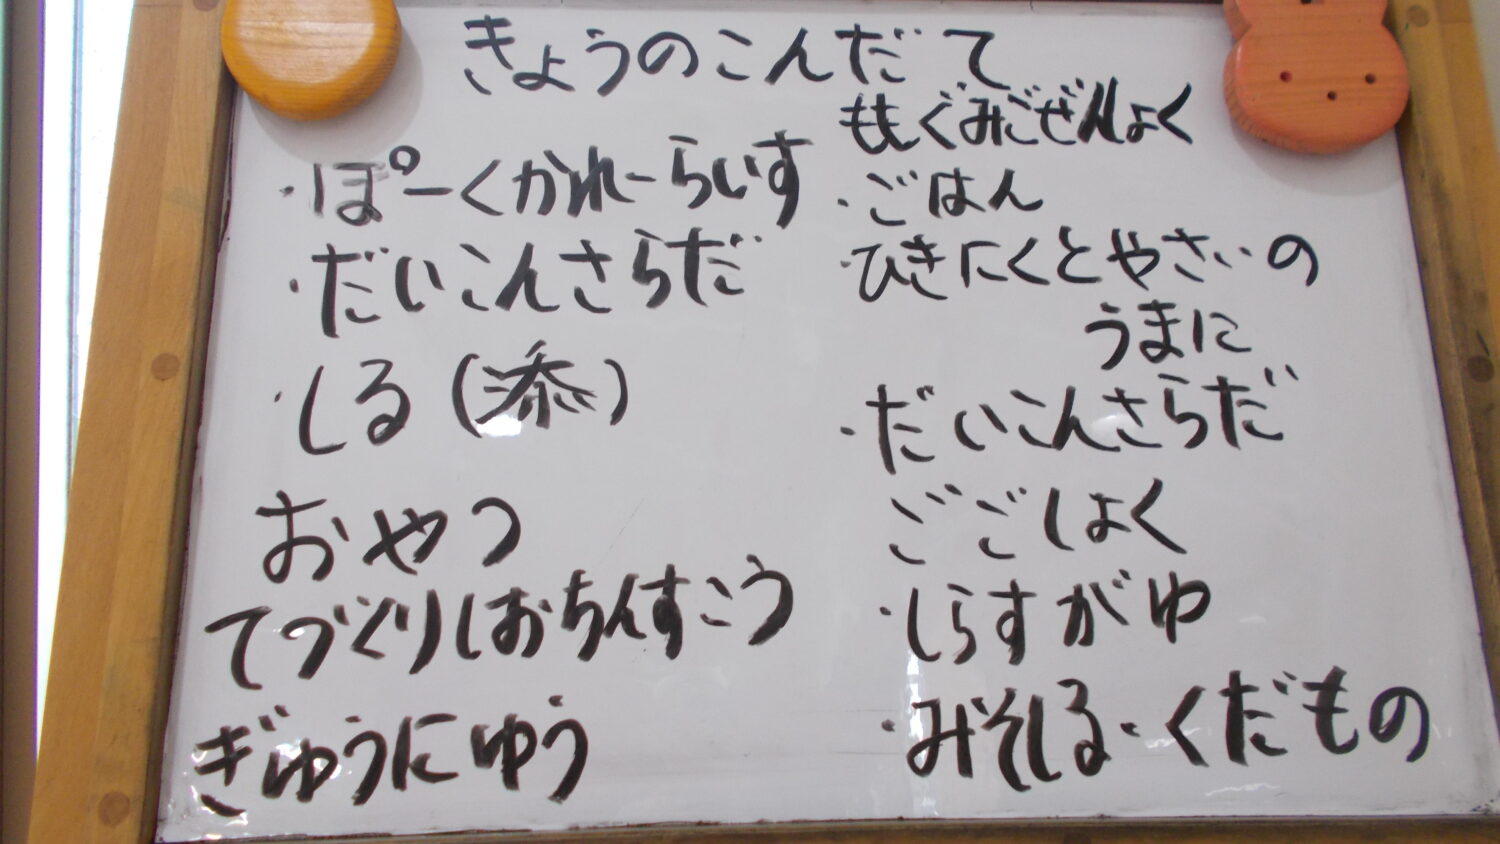 きょうのこんだて
・ぽーくかれーらいす
・だいこんさらだ
・しる(忝)
おやつ
てづくりしおちんすこう
ぎゅうにゅう
ももぐみごぜんしょく
・ごはん
・ひきにくとやさいの
うまに
・だいこんさらだ
ごごしょく
・しらすがゆ
・みそしる・くだもの